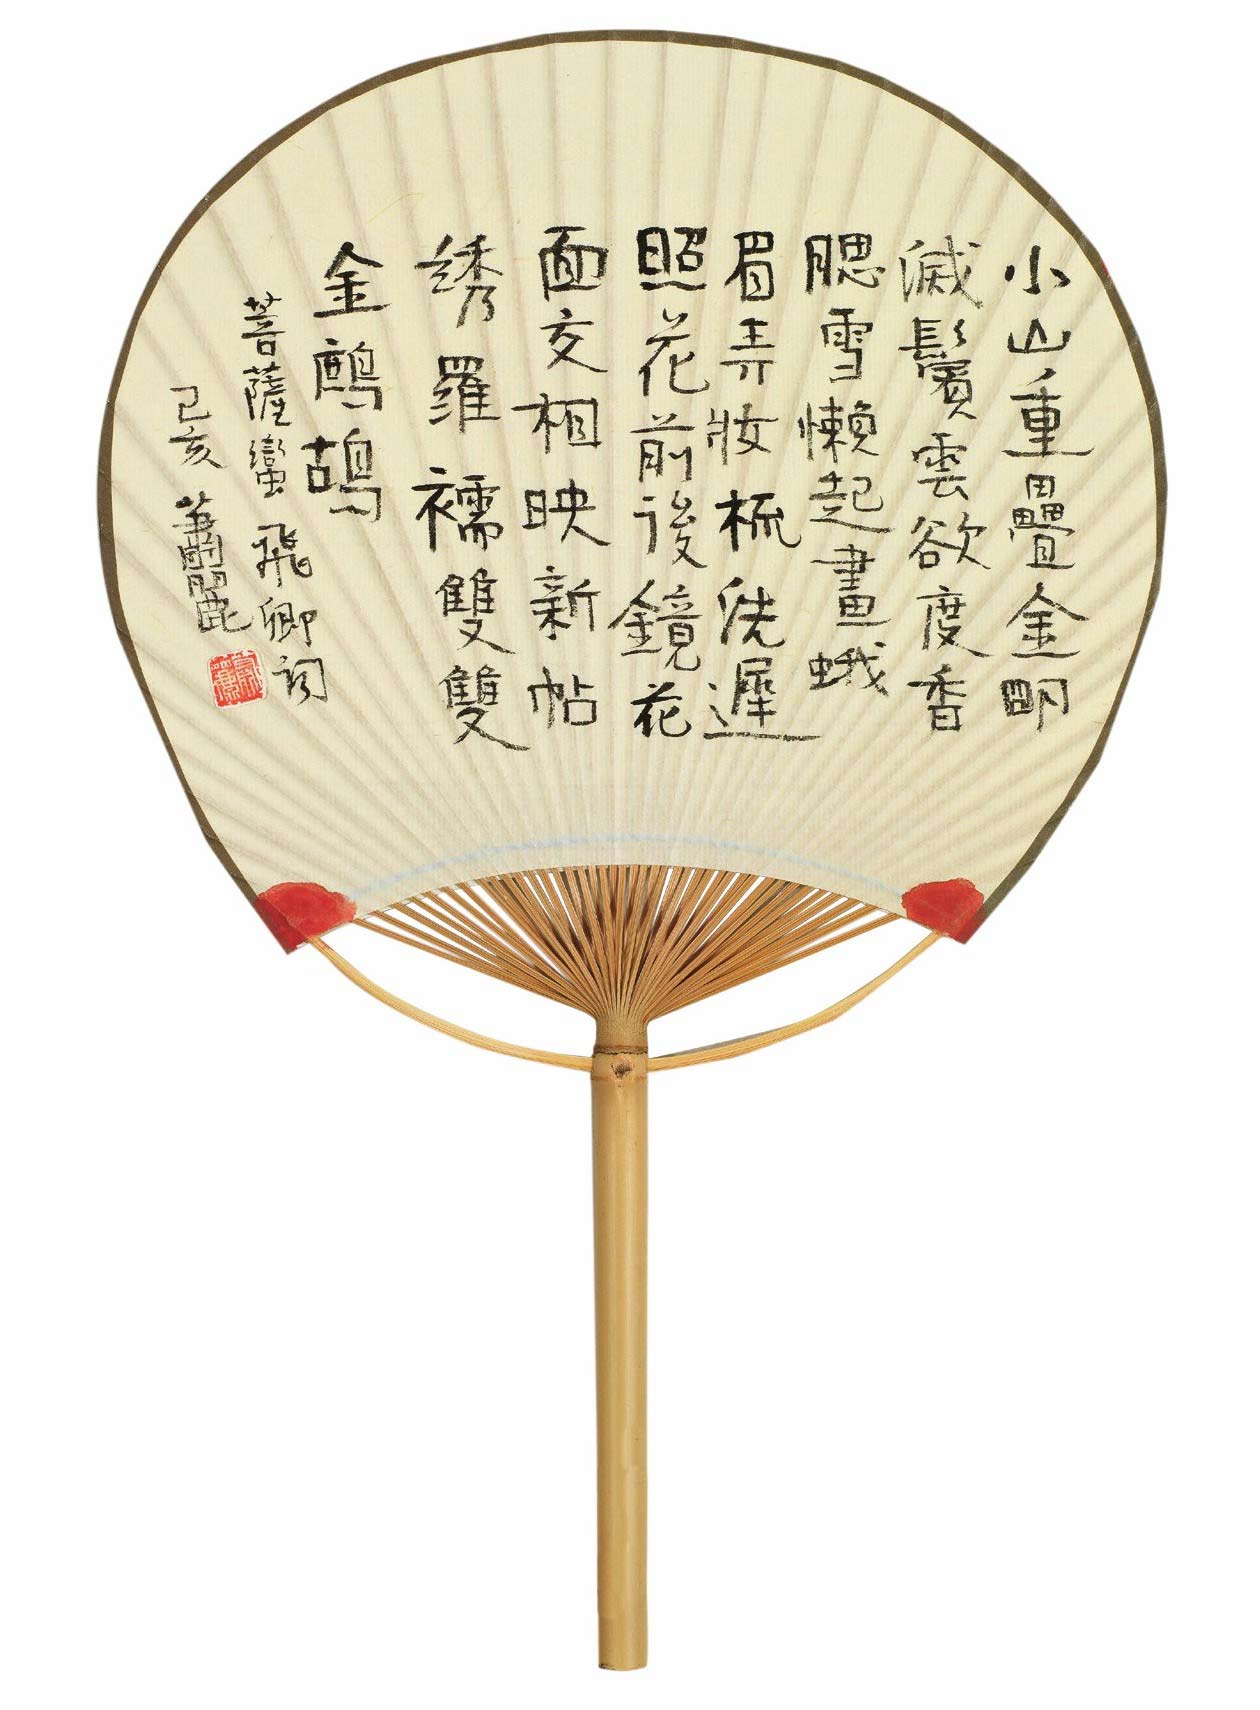 小山重疊金明
滅鬢雲欲度香
腮雪懶起畫蛾
眉弄妝梳洗遲
照花前後鏡花
面交相映新帖
綉羅襦雙雙
金鷓鴣
菩薩蠻 飛卿詞
己亥 蕭麗